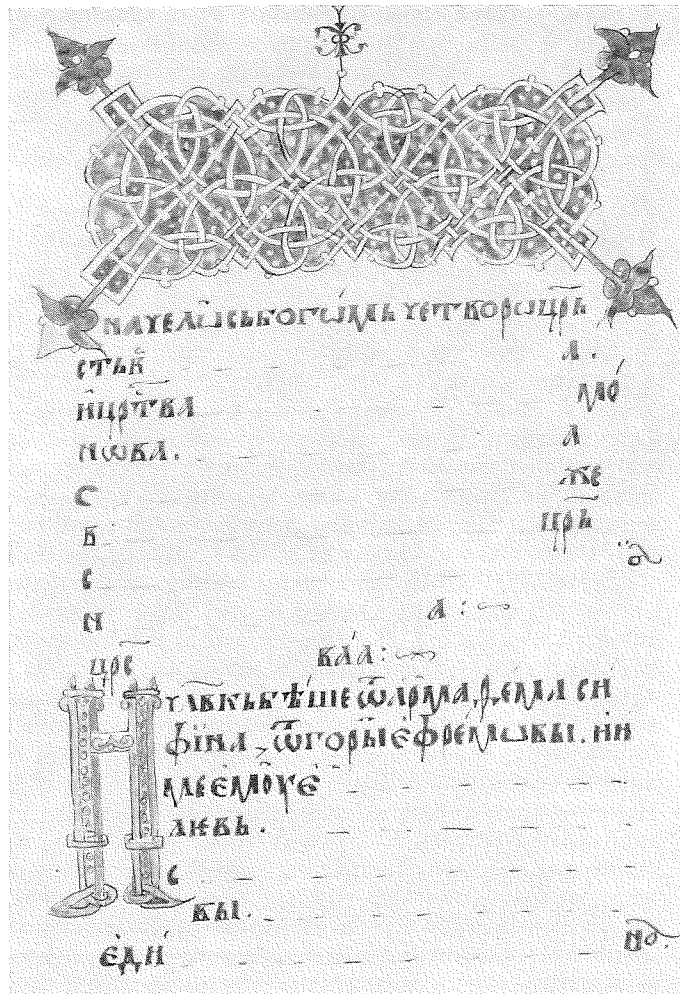 начелѡ сь богѡмь четворѡцр҃ь
стьк а.
и҆цр҃тва мо́
нѡва. а
с же
в цр҃ь
с
н а :
цр҃е ваа :
И чл҃вкь бѣше ѿ арма, ѳ, ема си
фїина, ѿ горы ефремѡвы. ин
ме емоу е
лкевь.
с
вы.
един но.